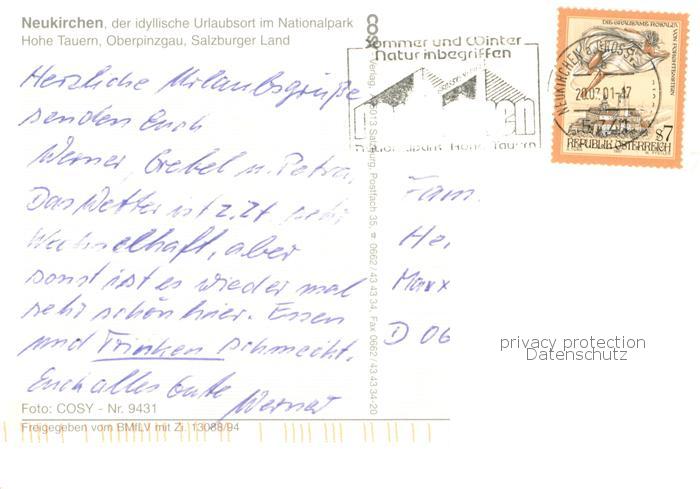 Neukirchen, der idyllische Urlaubsort im Nationalpark
Hohe Tauern, Oberpinzgau, Salzburger Land
Herzliche Urlaubsgrüße
senden Euch
Werner, Grebel u. Petra.
Das Wetter ist z.Zt. sehr
Wechselhaft, aber
sonst ist es wieder mal
sehr schön hier. Essen
und Trinken schmeckt.
Euch alles Gute
Werner
Foto: COSY - Nr. 9431
Freigegeben vom BMfLV mit Zl. 13088/94
Verlag, A-5013 Salzburg, Postfach 35, 0662/43 43 34, Fax 0662/43 43 34-20
Sommer und Winter
Natur inbegriffen
Nationalpark Hohe Tauern
NEUKIRCHEN a. GROSSV.
20.07.01-17
5741
DIE GRAUSAME ROSALIA
VON FORCHTENSTEIN
S7
REPUBLIK ÖSTERREICH
Fam.
He
Marx
D 06
privacy protection
Datenschutz